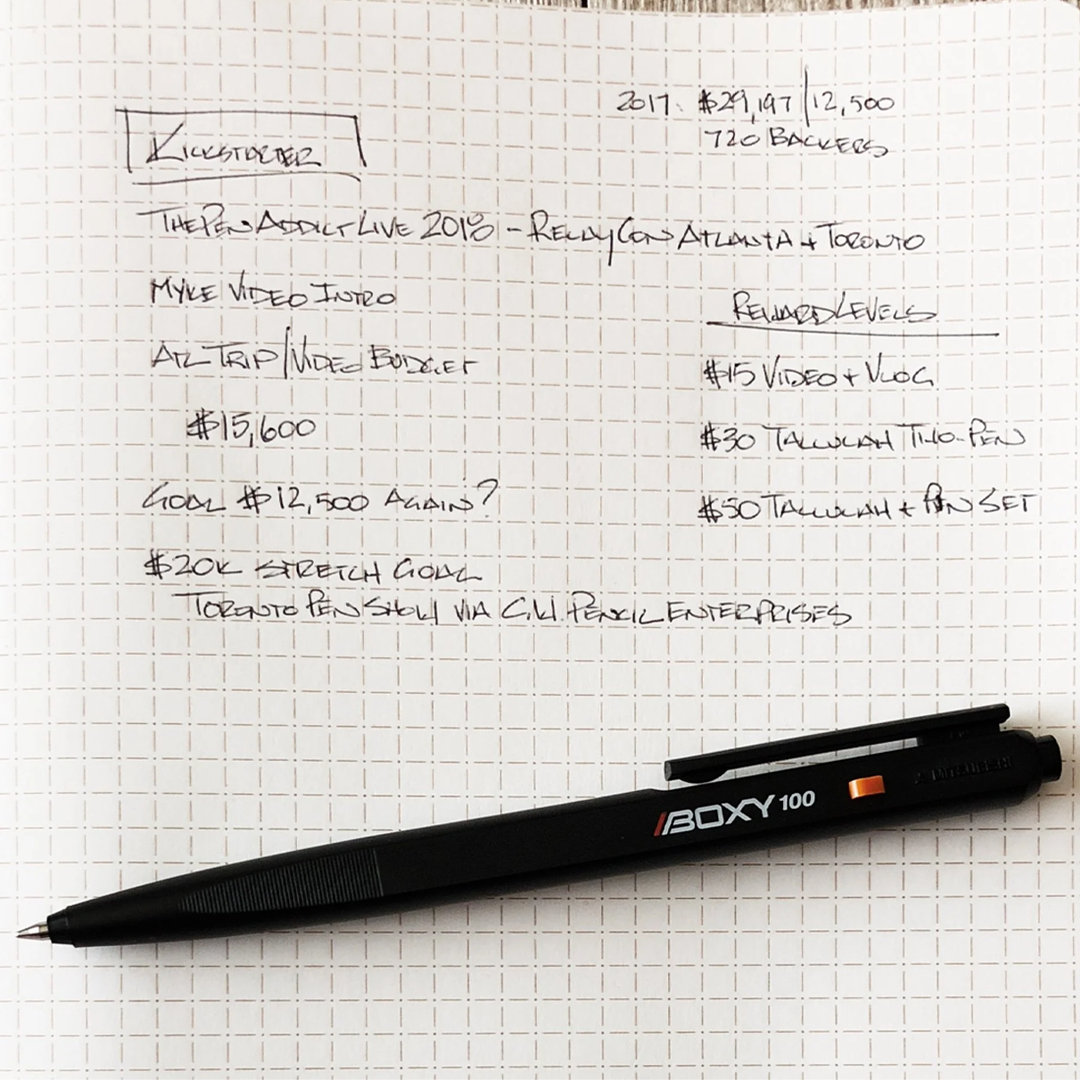 2017. $29,197 | 12,500
720 BACKERS
KICKSTARTER
THE PEN ADDICT LIVE 2018 - RELAYCON ATLANTA + TORONTO
MYKE VIDEO INTRO
ATL TRIP / VIDEO BUDGET
$15,600
GOAL $12,500 AGAIN?
$20K STRETCH GOAL
TORONTO PEN SHOW VIA C.W. PENCIL ENTERPRISES
REWARD LEVELS
$15 VIDEO + VLOG
$30 TALLULAH TWO-PEN
$50 TALLULAH + PEN SET
BOXY 100